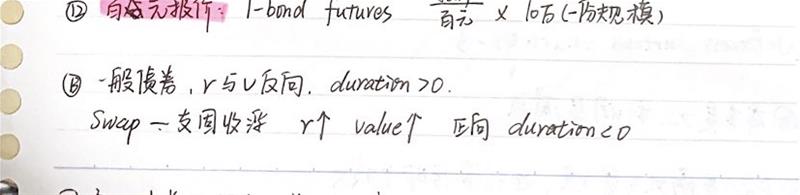 ⑫ 百元报价: T-bond futures /百元 × 10万(一份规模)
⑬ 一般债券, r与V反向. duration>0.
Swap — 支固收浮 r↑ value↑ 正向 duration<0